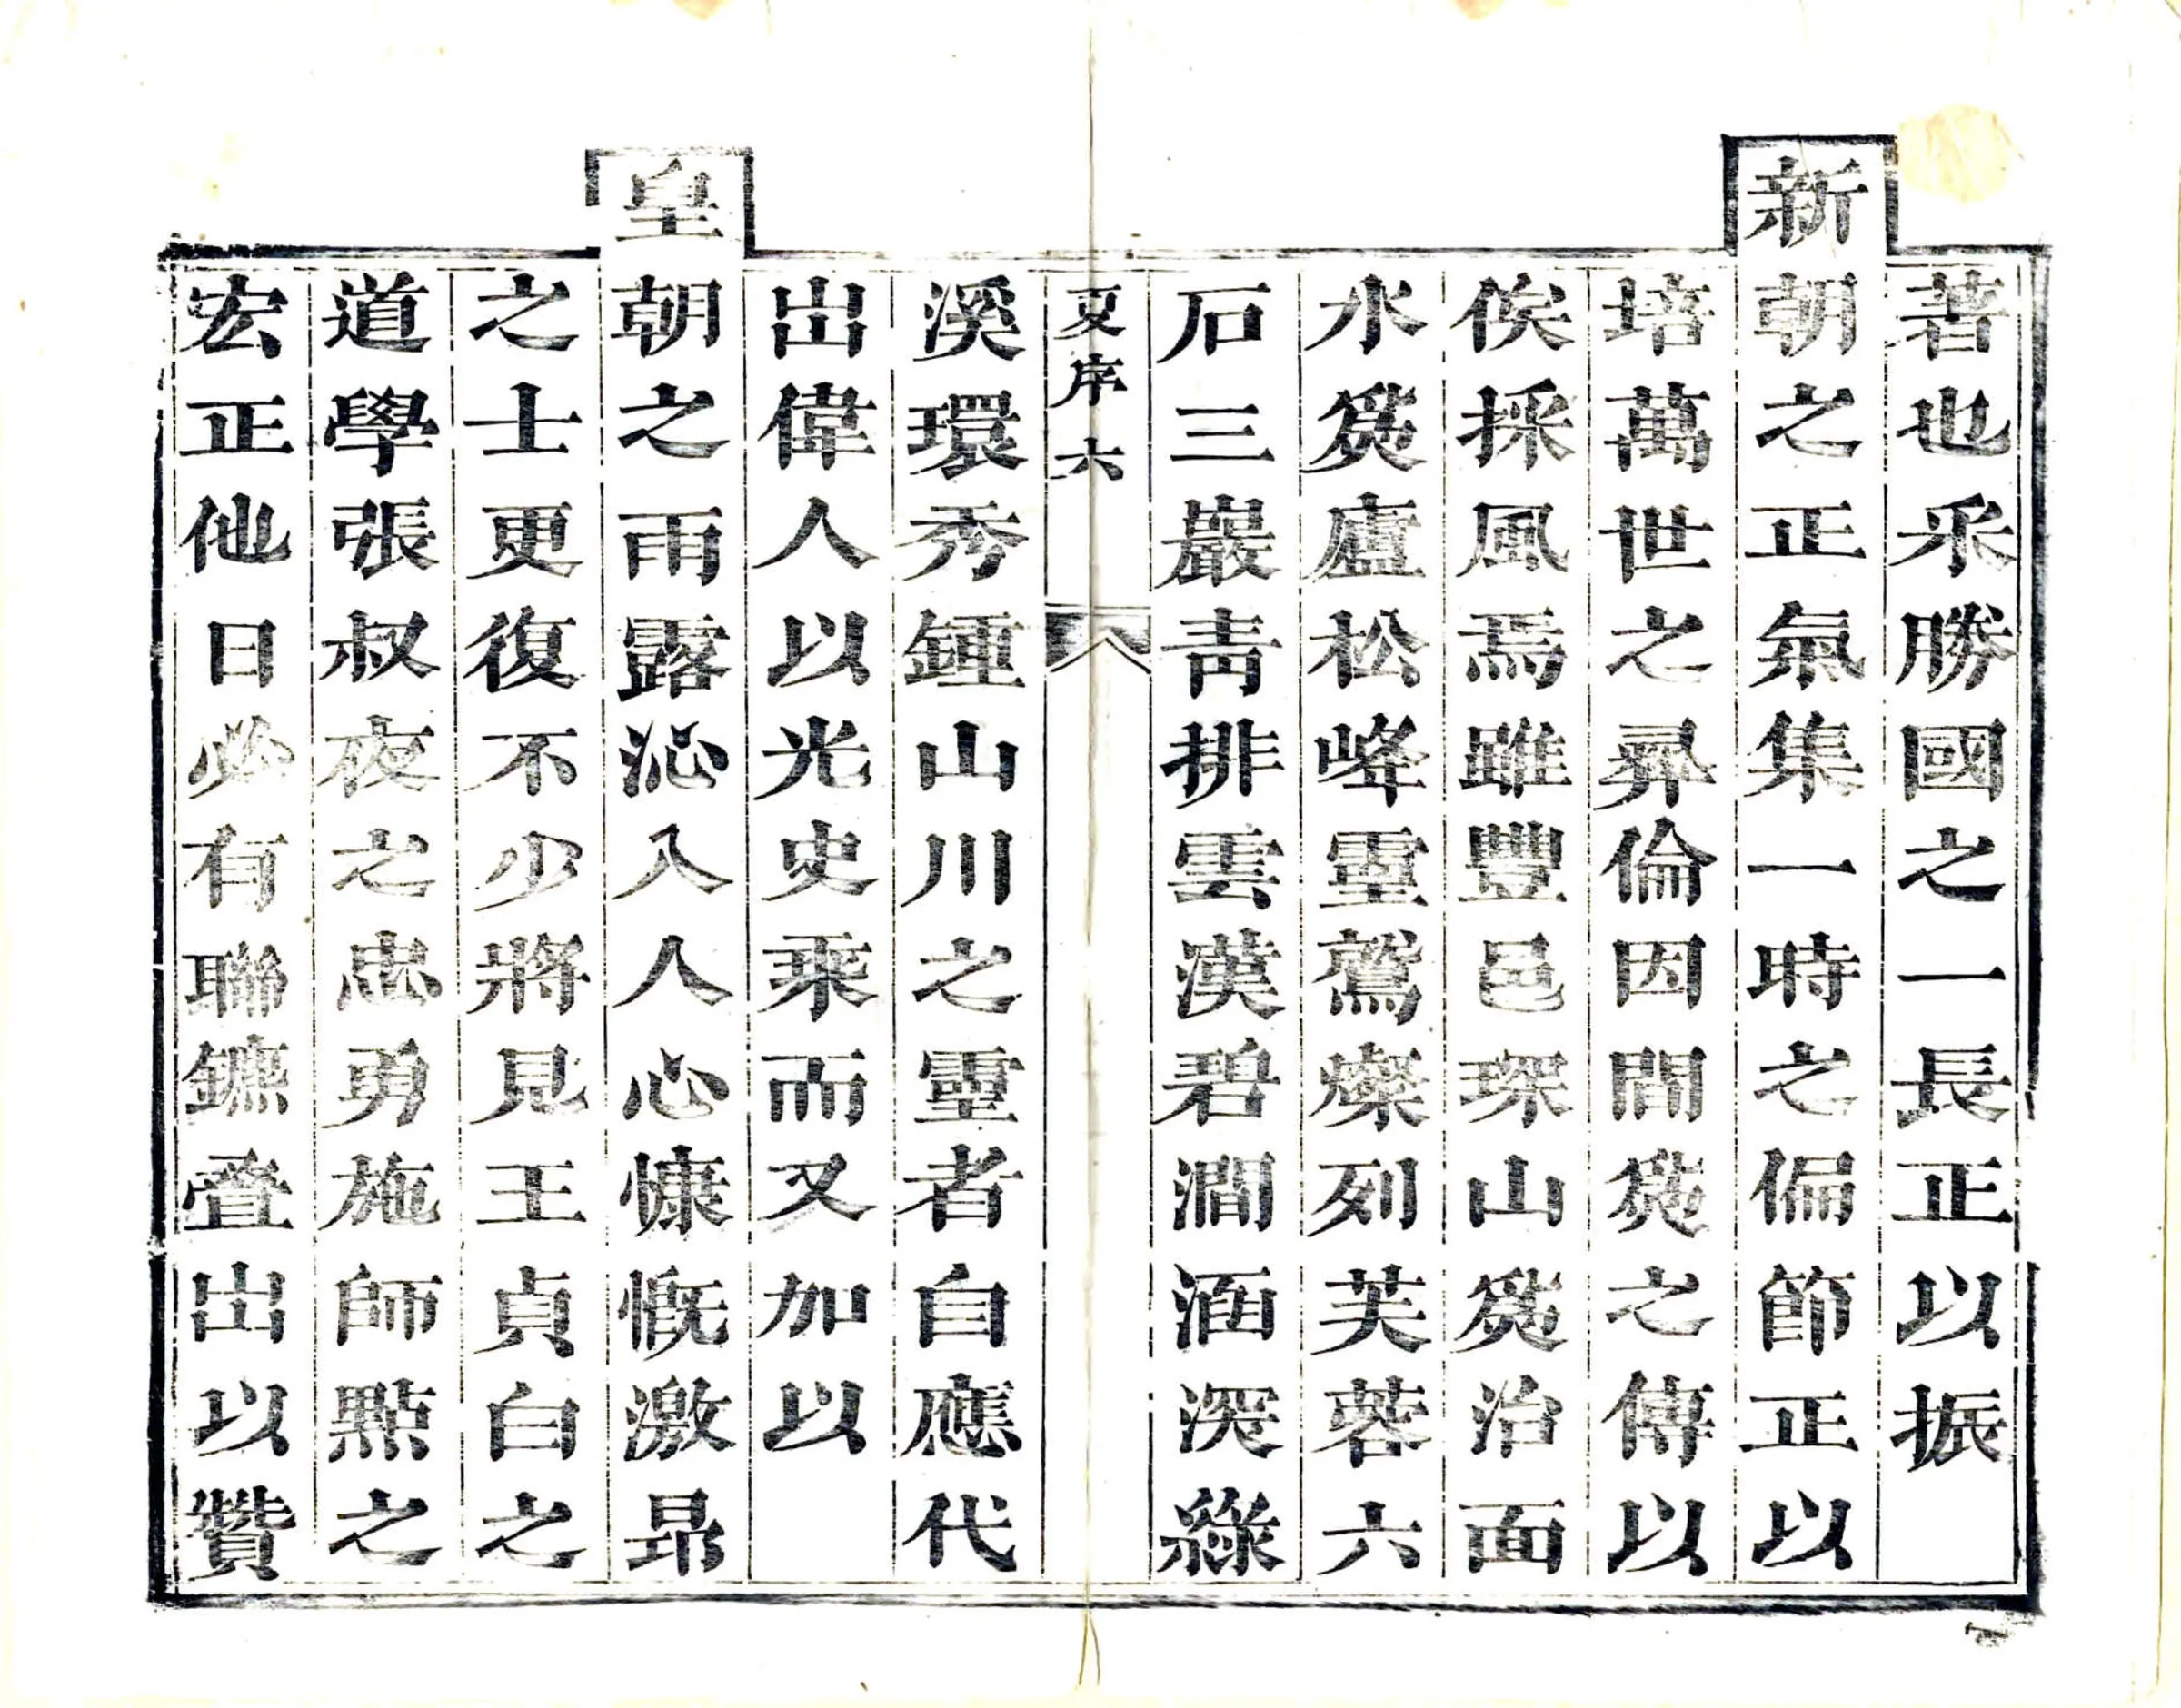 著也采勝國之一長正以振
新朝之正氣集一時之偏節正以
培萬世之彛倫因間發之傳以
俟採風焉雖豐邑琛山發治面
水發廬松峰靈鷲燦列芙蓉六
石三巖青排雲漢碧澗涵深綠
夏序六
溪環秀鍾山川之靈者自應代
出偉人以光史乘而又加以
皇朝之雨露沁入人心慷慨激昻
之士更復不少將見王貞白之
道學張叔夜之忠勇施師點之
宏正他日必有聯鑣叠出以贊